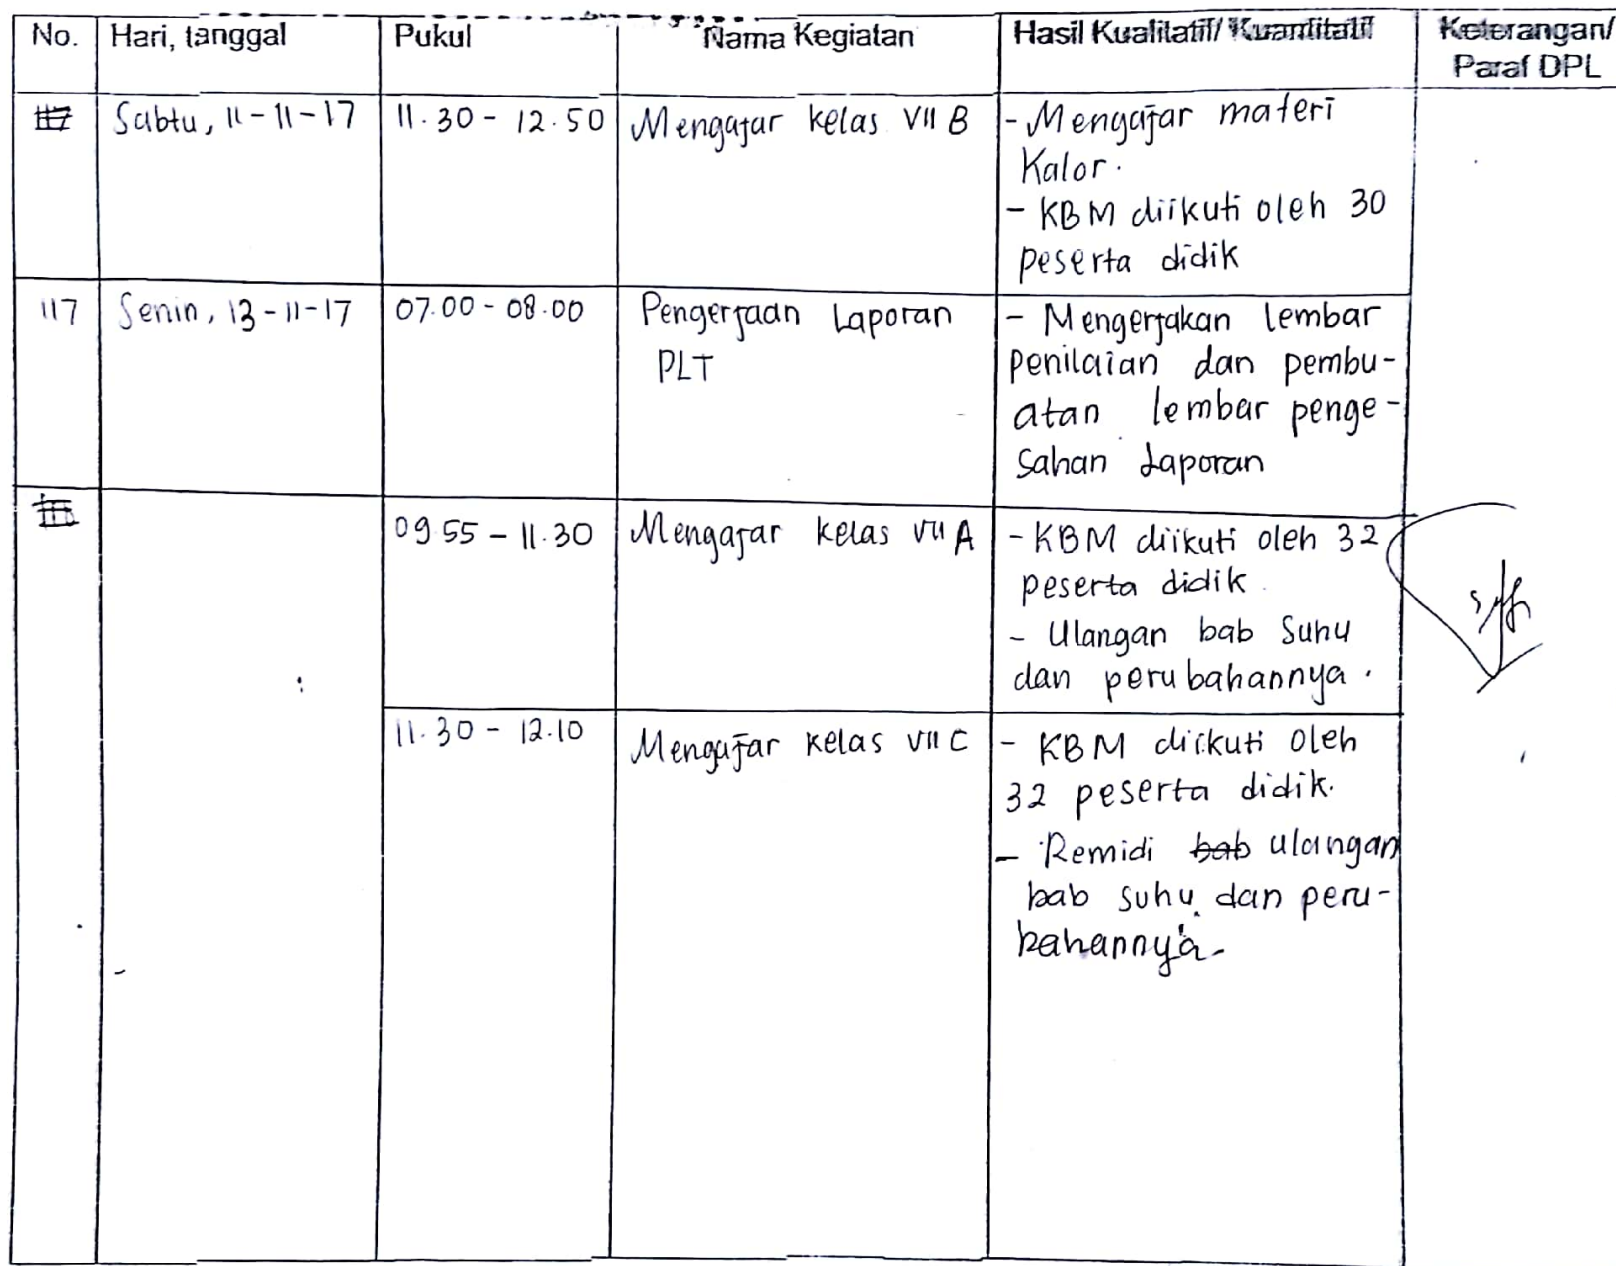 No. Hari, tanggal Pukul Nama Kegiatan Hasil Kualitatif/ Kuantitatif Keterangan/
Paraf DPL
Sabtu, 11-11-17 11.30 - 12.50 Mengajar kelas VII B - Mengajar materi
Kalor.
- KBM diikuti oleh 30
peserta didik
117 Senin, 13-11-17 07.00 - 08.00 Pengerjaan Laporan - Mengerjakan lembar
PLT penilaian dan pembu-
atan lembar penge-
sahan Laporan
09.55 - 11.30 Mengajar kelas VII A - KBM diikuti oleh 32
peserta didik
- Ulangan bab Suhu
dan perubahannya.
11.30 - 12.10 Mengajar kelas VII C - KBM diikuti oleh
32 peserta didik.
- Remidi bab ulangan
bab suhu dan peru-
bahannya.